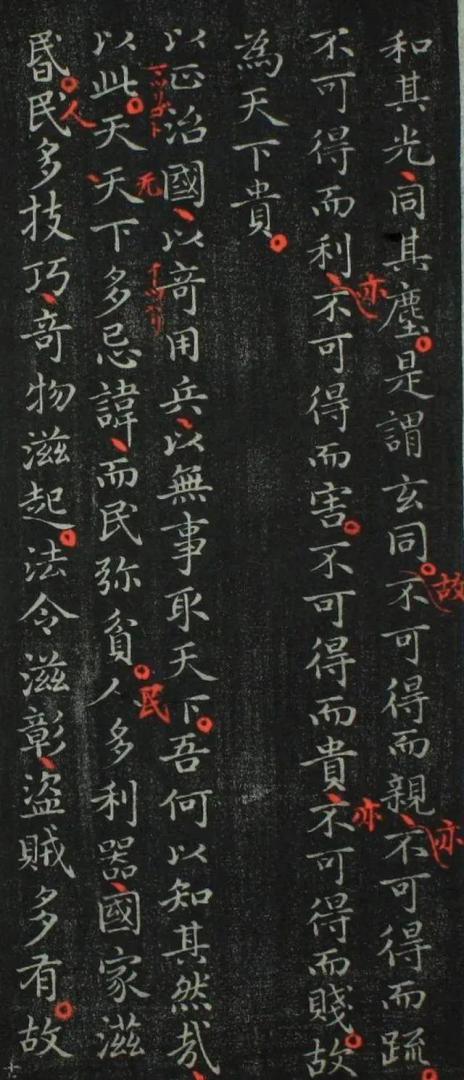 和其光同其塵是謂玄同不可得而親不可得而疏
不可得而利不可得而害不可得而貴不可得而賤故
為天下貴
以正治國以奇用兵以無事取天下吾何以知其然哉
以此天天下多忌諱而民弥貧人多利器國家滋
昬民多技巧奇物滋起法令滋彰盜賊多有故
故
亦
亦
亦
民
无
人